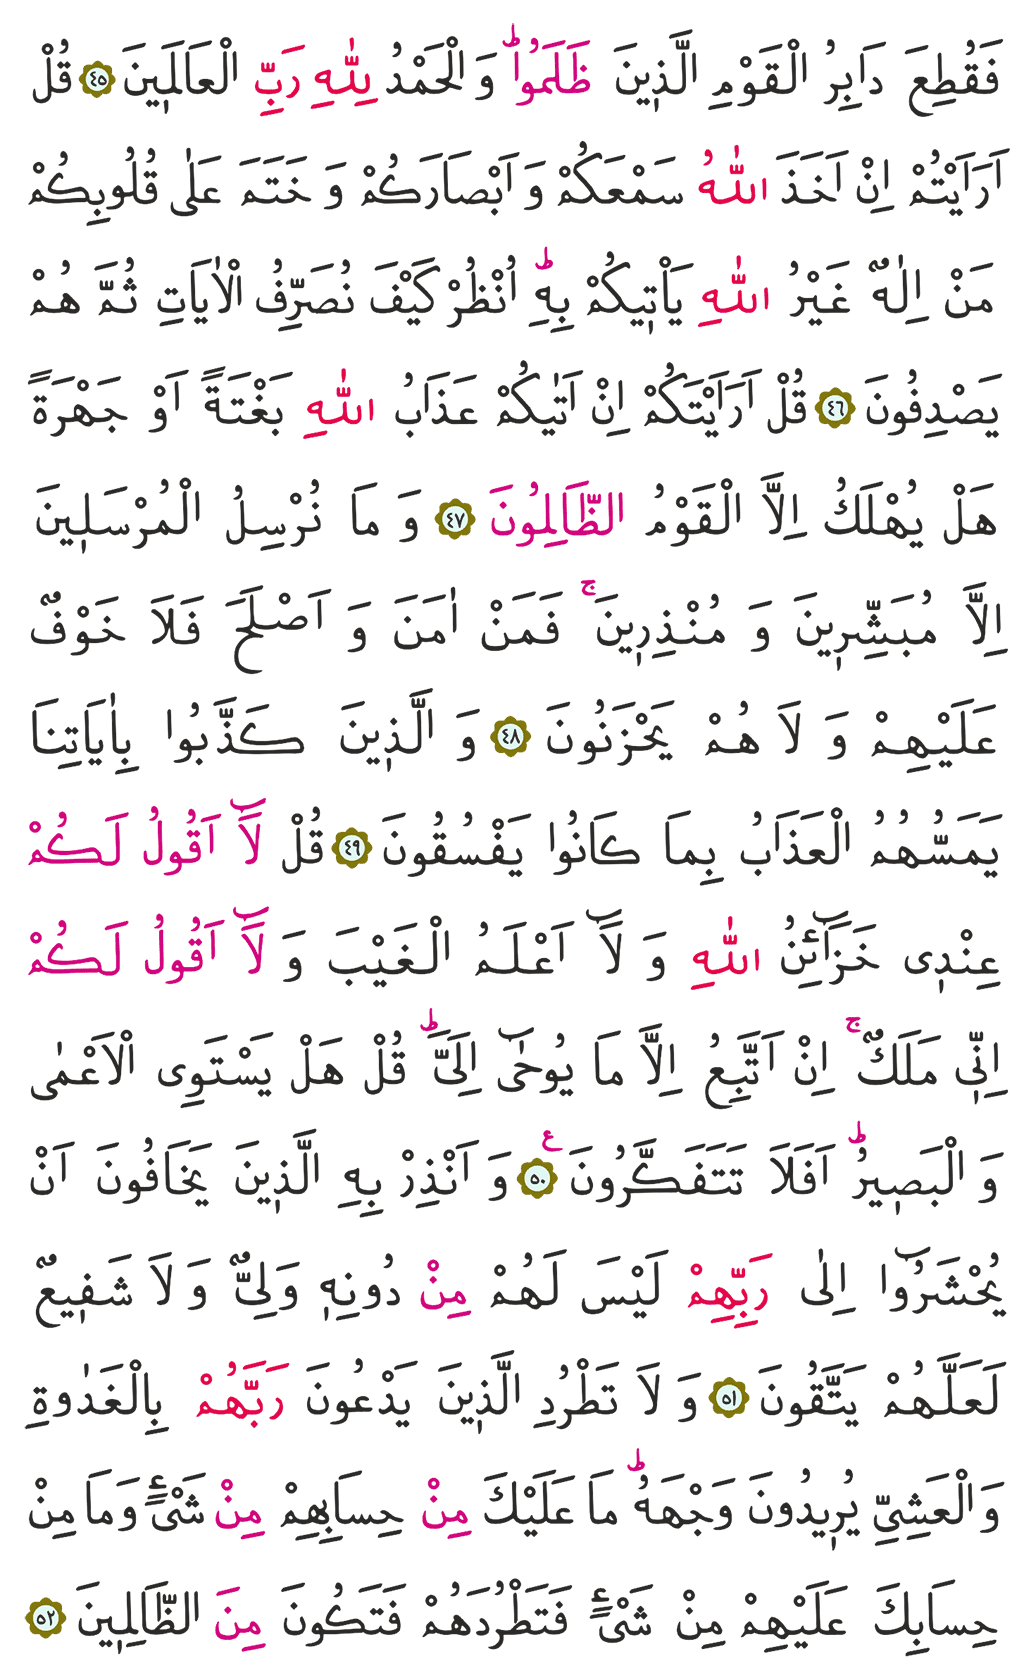 فَقُطِعَ دَابِرُ الْقَوْمِ الَّذٖينَ ظَلَمُواؕ وَ الْحَمْدُ لِلّٰهِ رَبِّ الْعَالَمٖينَ ﴿٤٥﴾ قُلْ
اَرَاَيْتُمْ اِنْ اَخَذَ اللّٰهُ سَمْعَكُمْ وَ اَبْصَارَكُمْ وَ خَتَمَ عَلٰى قُلُوبِكُمْ
مَنْ اِلٰهٌ غَيْرُ اللّٰهِ يَاْتٖيكُمْ بِهِؕ اُنْظُرْ كَيْفَ نُصَرِّفُ الْاٰيَاتِ ثُمَّ هُمْ
يَصْدِفُونَ ﴿٤٦﴾ قُلْ اَرَاَيْتَكُمْ اِنْ اَتٰيكُمْ عَذَابُ اللّٰهِ بَغْتَةً اَوْ جَهْرَةً
هَلْ يُهْلَكُ اِلَّا الْقَوْمُ الظَّالِمُونَ ﴿٤٧﴾ وَ مَا نُرْسِلُ الْمُرْسَلٖينَ
اِلَّا مُبَشِّرٖينَ وَ مُنْذِرٖينَۚ فَمَنْ اٰمَنَ وَ اَصْلَحَ فَلَا خَوْفٌ
عَلَيْهِمْ وَ لَا هُمْ يَحْزَنُونَ ﴿٤٨﴾ وَ الَّذٖينَ كَذَّبُوا بِاٰيَاتِنَا
يَمَسُّهُمُ الْعَذَابُ بِمَا كَانُوا يَفْسُقُونَ ﴿٤٩﴾ قُلْ لَٓا اَقُولُ لَكُمْ
عِنْدٖى خَزَٓائِنُ اللّٰهِ وَ لَٓا اَعْلَمُ الْغَيْبَ وَ لَٓا اَقُولُ لَكُمْ
اِنّٖى مَلَكٌۚ اِنْ اَتَّبِعُ اِلَّا مَا يُوحٰٓى اِلَىَّؕ قُلْ هَلْ يَسْتَوِى الْاَعْمٰى
وَ الْبَصٖيرُؕ اَفَلَا تَتَفَكَّرُونَ ﴿٥٠﴾ ع وَ اَنْذِرْ بِهِ الَّذٖينَ يَخَافُونَ اَنْ
يُحْشَرُٓوا اِلٰى رَبِّهِمْ لَيْسَ لَهُمْ مِنْ دُونِهٖ وَلِىٌّ وَ لَا شَفٖيعٌ
لَعَلَّهُمْ يَتَّقُونَ ﴿٥١﴾ وَ لَا تَطْرُدِ الَّذٖينَ يَدْعُونَ رَبَّهُمْ بِالْغَدٰوةِ
وَ الْعَشِىِّ يُرٖيدُونَ وَجْهَهُؕ مَا عَلَيْكَ مِنْ حِسَابِهِمْ مِنْ شَىْءٍ وَ مَا مِنْ
حِسَابِكَ عَلَيْهِمْ مِنْ شَىْءٍ فَتَطْرُدَهُمْ فَتَكُونَ مِنَ الظَّالِمٖينَ ﴿٥٢﴾